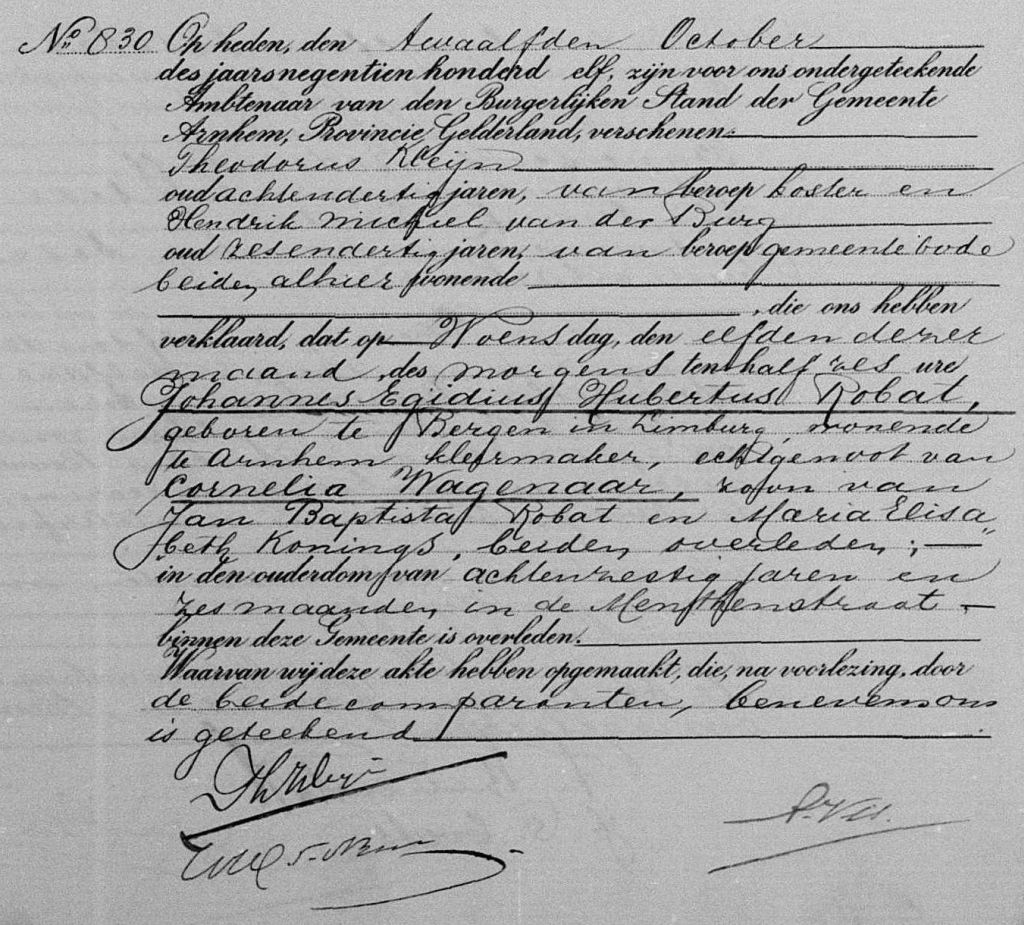 No. 830 Op heden, den twaalfden October
des jaars negentien honderd elf, zijn voor ons ondergeteekende
Ambtenaar van den Burgerlijken Stand der Gemeente
Arnhem, Provincie Gelderland, verschenen:
Theodorus Kleijn
oud achtendertig jaren, van beroep koster en
Hendrik Michiel van der Burg
oud zesendertig jaren, van beroep gemeentebode
beiden alhier wonende
, die ons hebben
verklaard, dat op Woensdag, den elfden dezer
maand, des morgens ten half zes ure
Johannes Egidius Hubertus Robat,
geboren te Bergen in Limburg, wonende
te Arnhem kleermaker, echtgenoot van
Cornelia Wagenaar, zoon van
Jan Baptista Robat en Maria Elisa„
beth Konings, beiden overleden;
in den ouderdom van achtenzestig jaren en
zes maanden, in de Menthenstraat
binnen deze Gemeente is overleden.
Waarvan wij deze akte hebben opgemaakt, die, na voorlezing, door
de beide comparanten, benevens ons
is geteekend